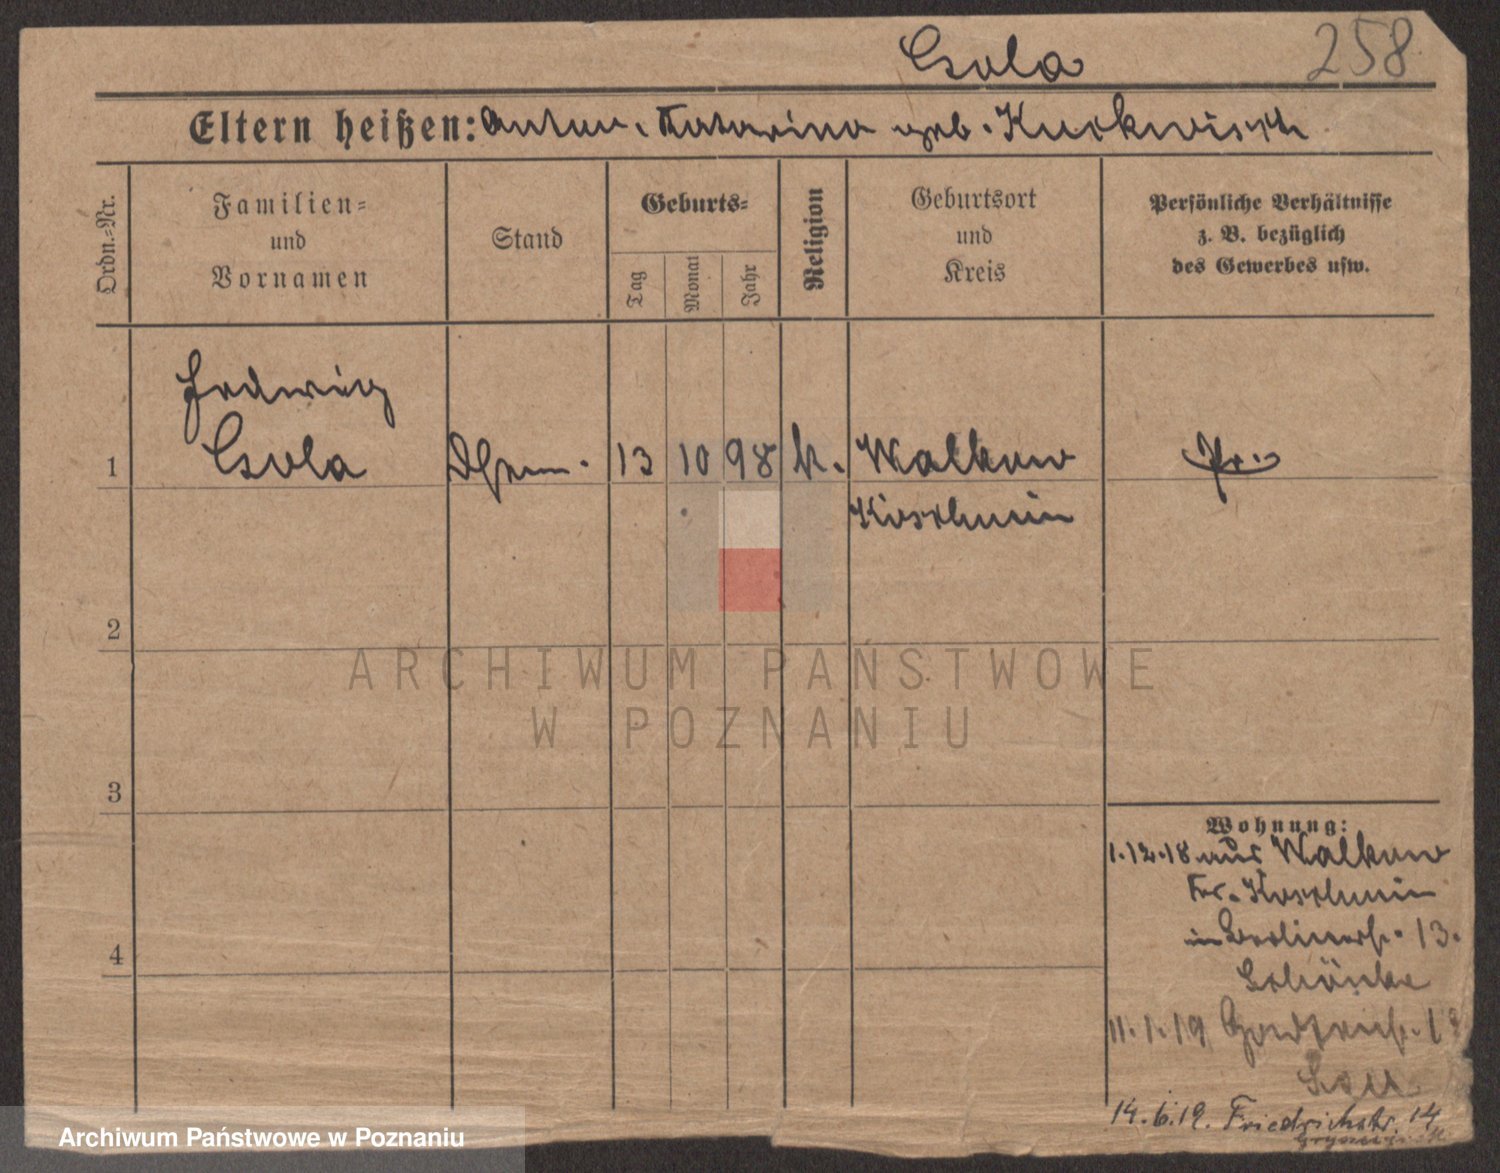 Gola 258
Eltern heißen: Anton, Katarina geb.
Ordn.-Nr.
Familien-
und
Vornamen
Stand
Geburts-
Tag
Monat
Jahr
Religion
Geburtsort
und
Kreis
Persönliche Verhältnisse
z. B. bezüglich
des Gewerbes usw.
Hedwig
1 Gola 13 10 98 k. Walkow Pr.
Koschmin
2
3
4
Wohnung:
1.12.18 aus Walkow
Kr. Koschmin
in Berlinerstr. 13.
11.1.19
14.6.19. Friedrichstr. 14
ARCHIWUM PAŃSTWOWE
W POZNANIU
Archiwum Państwowe w Poznaniu